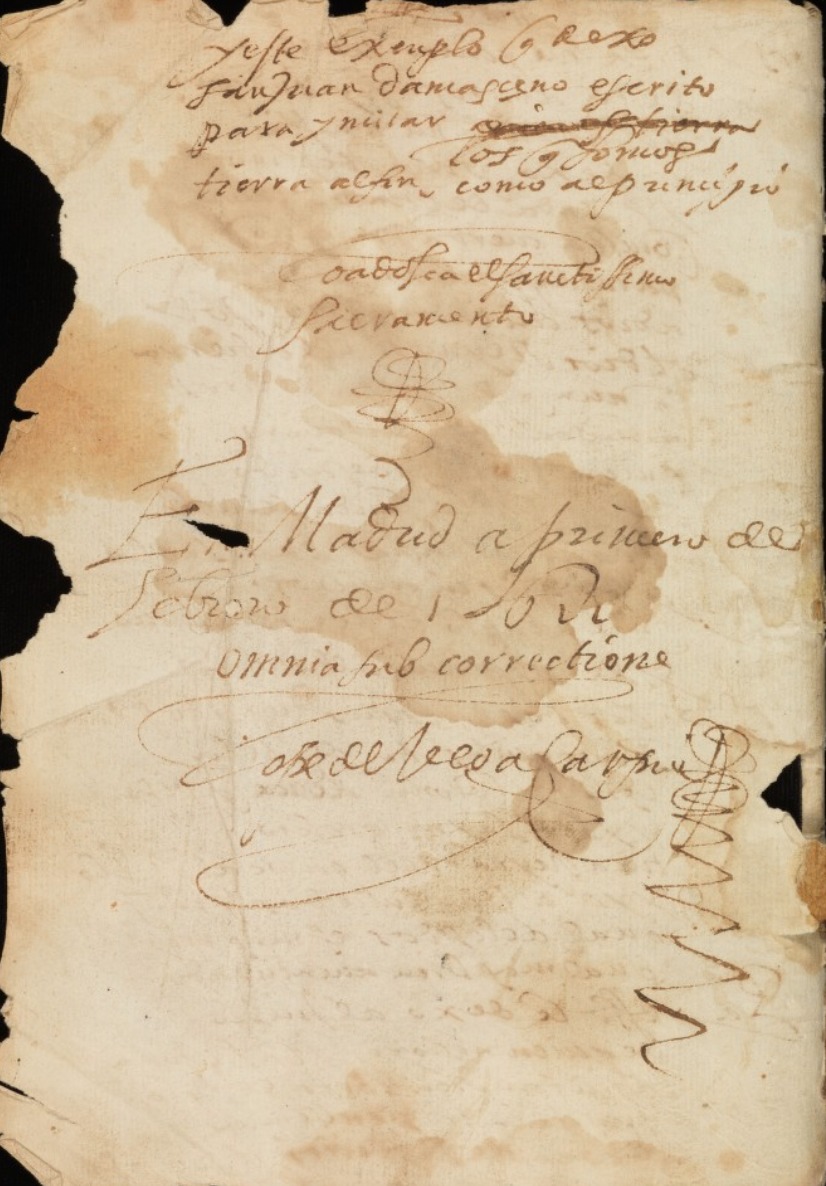 y este exemplo q̃ dexo
san Juan damasçeno escrito
para ymitar
los q̃ somos
tierra al fin, como al principio
Loado sea el sanctissimo
sacramento
En Madrid a primero de
febrero de 16
omnia sub correctione
Lope de Vega Carpio